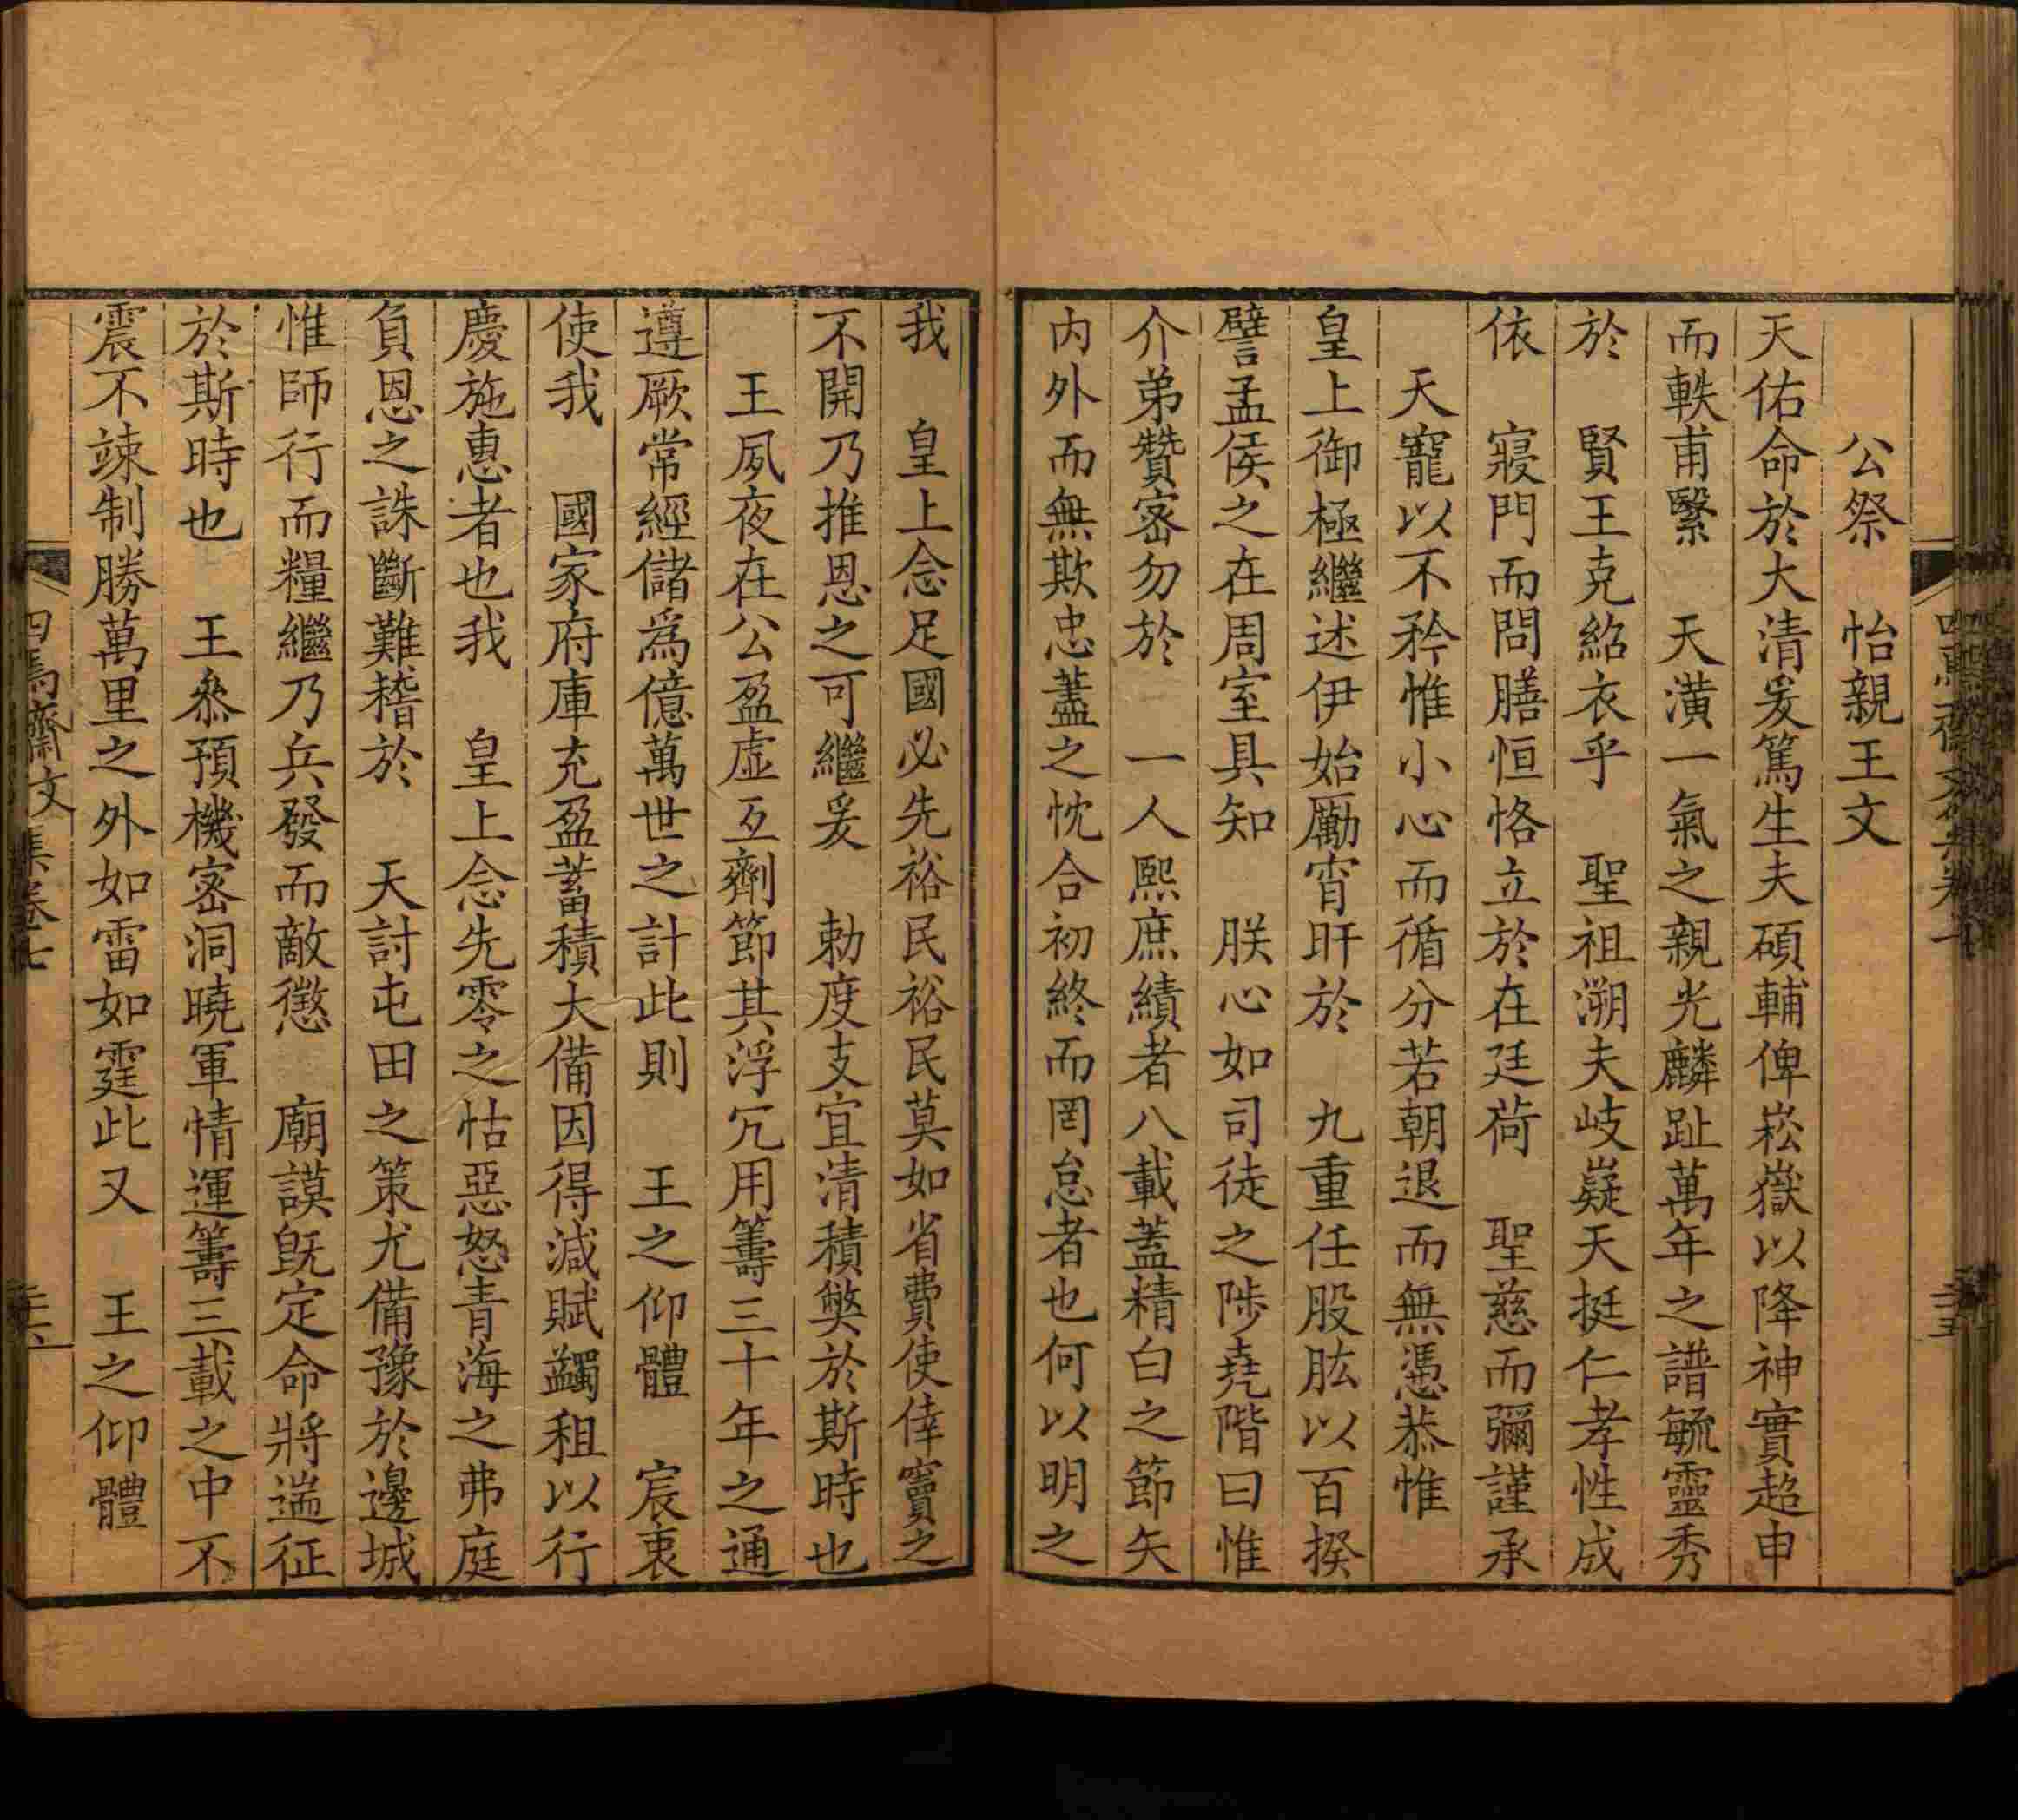 公祭　怡親王文
天佑命於大清爰篤生夫碩輔俾崧嶽以降神實超申
而軼甫緊　天潢一氣之親光麟趾萬年之譜毓靈秀
於　賢王克紹衣乎　聖祖溯夫岐嶷天挺仁孝性成
依　寢門而問膳恒恪立於在廷荷　聖慈而彌謹承
　天寵以不矜惟小心而循分若朝退而無憑恭惟
皇上御極繼述伊始勵宵旰於　九重任股肱以百揆
譬孟侯之在周室具知　朕心如司徒之陟堯階曰惟
介弟贊密勿於　一人熙庶績者八載蓋精白之節矢
內外而無欺忠藎之忱合初終而罔怠者也何以明之
我　皇上念足國必先裕民裕民莫如省費使倖竇之
不開乃推恩之可繼爰　勅度支宜清積弊於斯時也
　王夙夜在公盈虛互劑節其浮冗用籌三十年之通
遵厥常經儲爲億萬世之計此則　王之仰體　宸衷
使我　國家府庫充盈蓄積大備因得減賦蠲租以行
慶施惠者也我　皇上念先零之怙惡怒青海之弗庭
負恩之誅斷難稽於　天討屯田之策尤備豫於邊城
惟師行而糧繼乃兵發而敵懲　廟謨旣定命將遄征
於斯時也　王叅預機密洞曉軍情運籌三載之中不
震不竦制勝萬里之外如雷如霆此又　王之仰體
四焉齋文集卷七